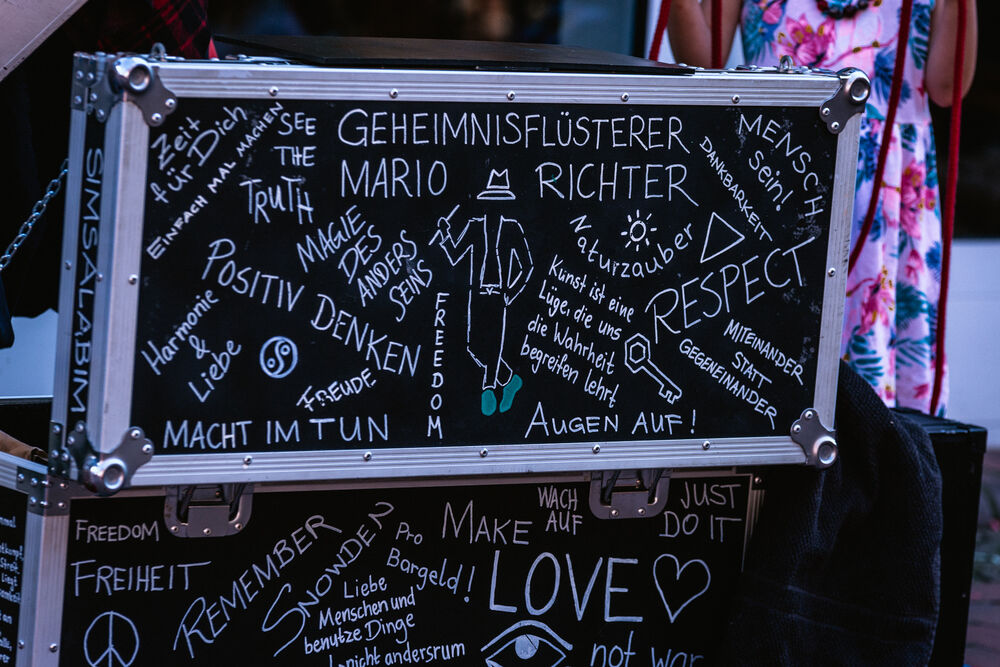 SIMSALABIM
Zeit
für Dich
EINFACH MAL MACHEN
SEE
THE
TRUTH
GEHEIMNISFLÜSTERER
MARIO RICHTER
MENSCH
Sein!
DANKBARKEIT
MAGIE
DES
ANDERS
SEINS
Naturzauber
POSITIV
DENKEN
Harmonie
&
Liebe
FREUDE
FREEDOM
Kunst ist eine
Lüge, die uns
die Wahrheit
begreifen lehrt
RESPECT
MITEINANDER
STATT
GEGENEINANDER
MACHT IM TUN
AUGEN AUF!
FREEDOM
FREIHEIT
REMEMBER
SNOWDEN?
Pro
Bargeld!
Liebe
Menschen und
benutze Dinge
nicht andersrum
MAKE
LOVE
not war
WACH
AUF
JUST
DO IT